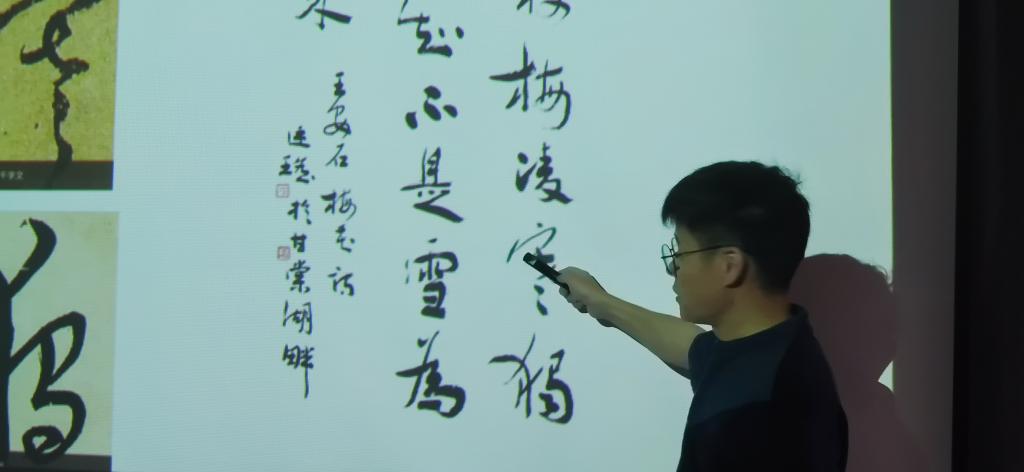 梅凌寒獨
知不是雪為
王安石梅花詩
於甘棠湖畔
千字文
獨